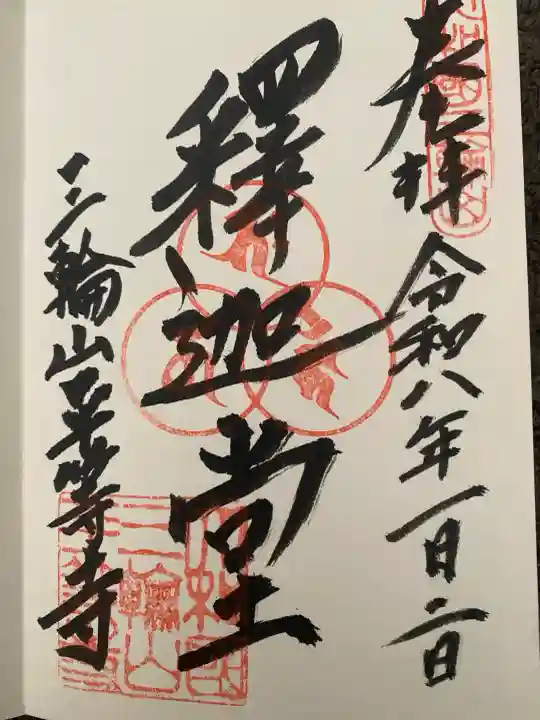 奉拝
令和八年一月二日
釋迦堂
三輪山平等寺